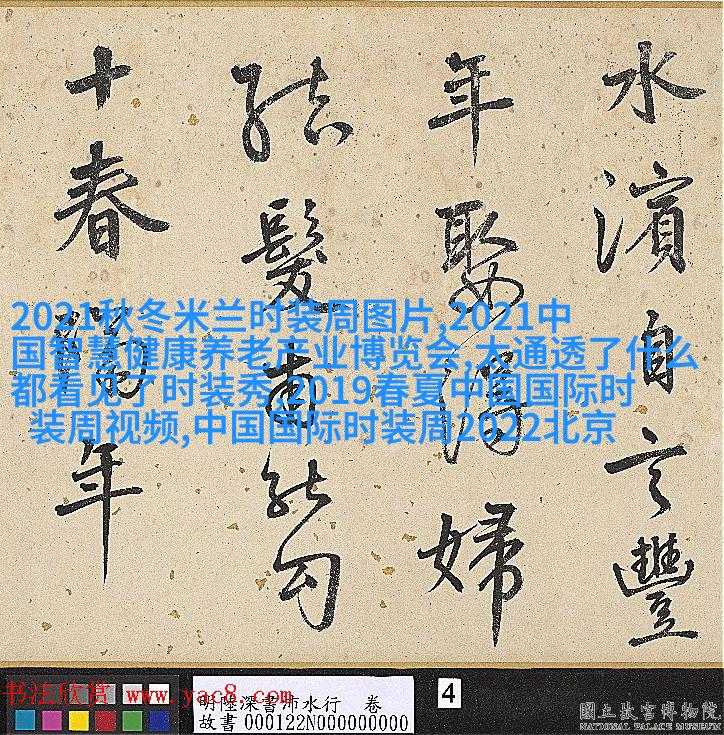 水濱自言豐
年娶得婦
結髮甫能勾
十春年
2021秋冬米兰时装周图片,2021中
国智慧健康养老产业博览会,太通透了什么
都看见了时装秀,2019春夏中国国际时
装周视频,中国国际时装周2022北京
书法欣赏 www.yac8.com
明陸深書沛水行 卷
故書000122N000000000
4
國立故宮博物院
NATIONAL PALACE MUSEUM